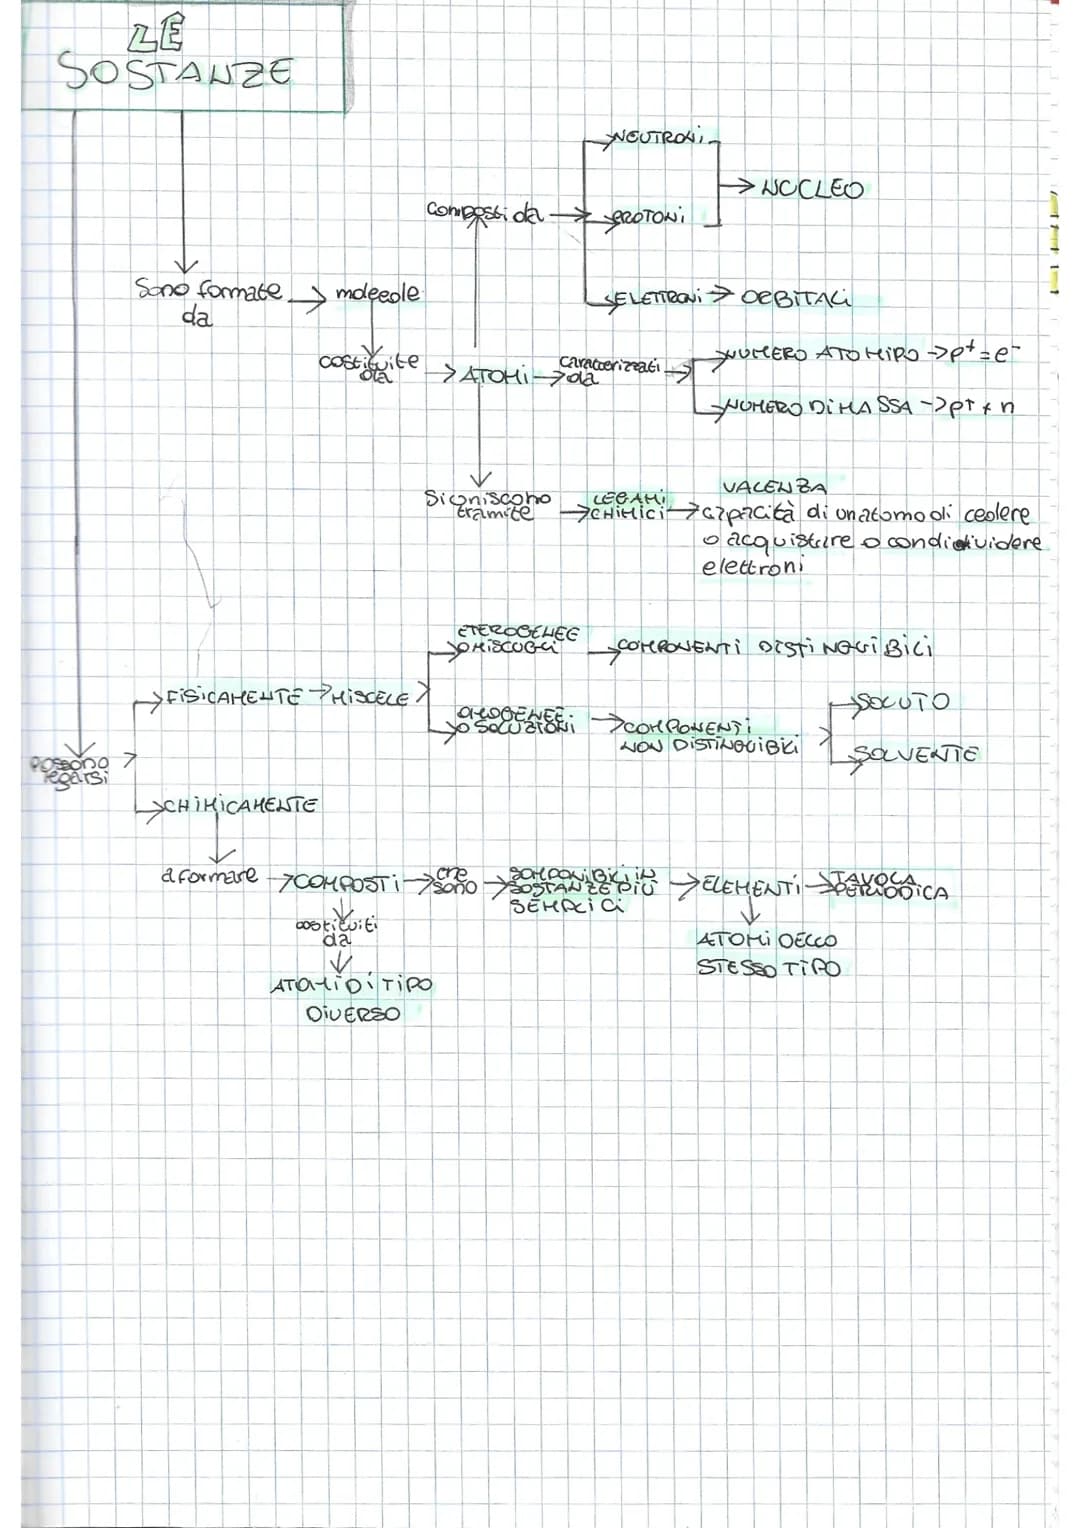 LE
SOSTANZE
NEUTRONI
NUCLEO
composti da
PROTONI
Sono formate
da
molecole
ELETTRONI → ORBITALI
costituite
da
ATOMI
caratterizzati
da
NUMERO ATOMIPO → p+ = e-
NUMERO DI MASSA → p+ + n
Si uniscono
tramite
LEGAMI
CHIMICI
VALENZA
capacità di un atomo di cedere
o acquistare o condidividere
elettroni
ETEROGENEE
O MISCUGLI
COMPONENTI DISTINGUIBILI
FISICAMENTE → MISCELE
OMOGENEE
O SOLUZIONI
COMPONENTI
NON DISTINGUIBILI
SOLUTO
SOLVENTE
possono
legarsi
CHIMICAMENTE
a formare
COMPOSTI
che
sono
SCOMPONIBILI IN
SOSTANZE PIÙ
SEMPLICI
ELEMENTI
TAVOLA
PERIODICA
costituiti
da
ATOMI DI TIPO
DIVERSO
ATOMI DELLO
STESSO TIPO